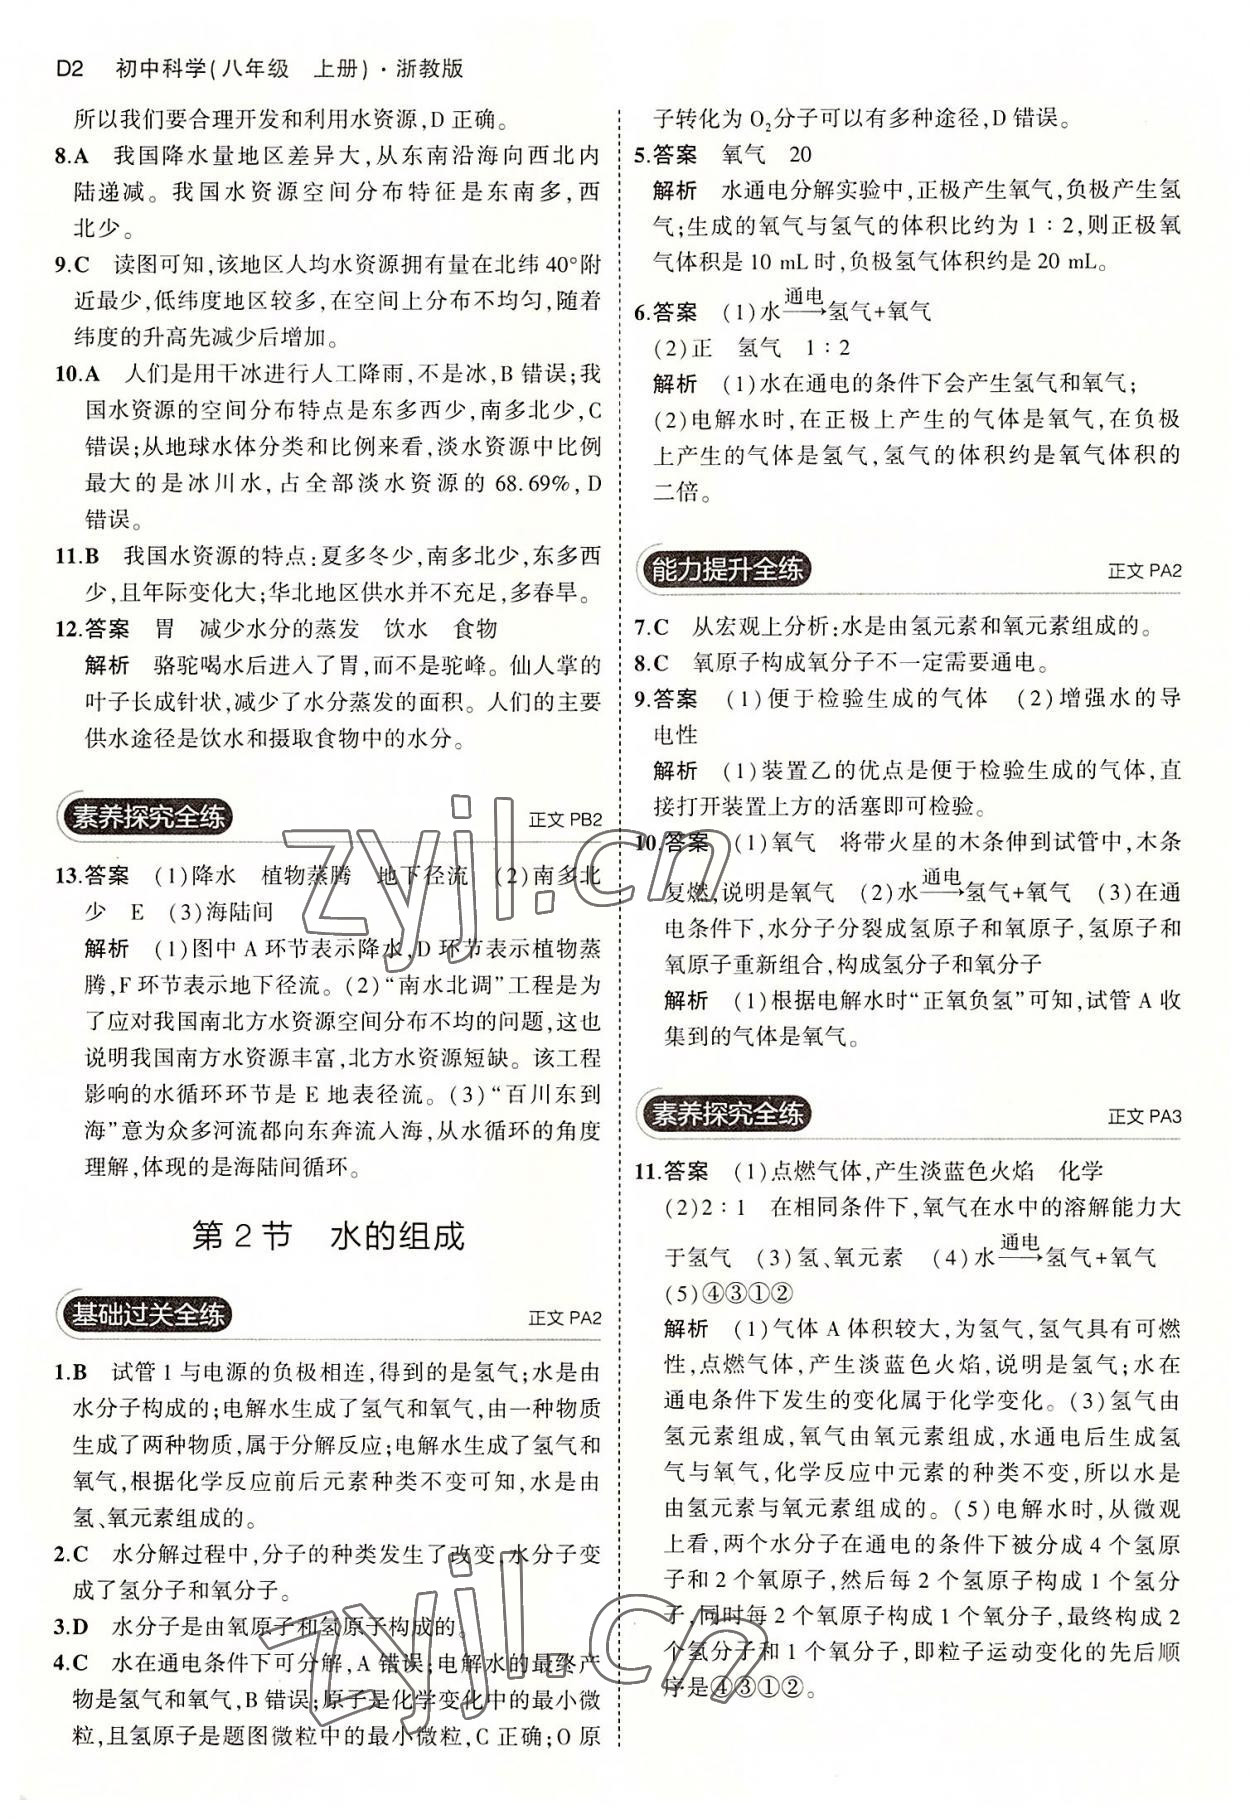 D2 初中科学(八年级 上册)·浙教版
所以我们要合理开发和利用水资源,D 正确。
8.A 我国降水量地区差异大,从东南沿海向西北内
陆递减。我国水资源空间分布特征是东南多,西
北少。
9.C 读图可知,该地区人均水资源拥有量在北纬 40°附
近最少,低纬度地区较多,在空间上分布不均匀,随着
纬度的升高先减少后增加。
10.A 人们是用干冰进行人工降雨,不是冰,B 错误;我
国水资源的空间分布特点是东多西少,南多北少,C
错误;从地球水体分类和比例来看,淡水资源中比例
最大的是冰川水,占全部淡水资源的 68.69%,D
错误。
11.B 我国水资源的特点:夏多冬少,南多北少,东多西
少,且年际变化大;华北地区供水并不充足,多春旱。
12.答案 胃 减少水分的蒸发 饮水 食物
解析 骆驼喝水后进入了胃,而不是驼峰。仙人掌的
叶子长成针状,减少了水分蒸发的面积。人们的主要
供水途径是饮水和摄取食物中的水分。
素养探究全练 正文 PB2
13.答案 (1)降水 植物蒸腾 地下径流 (2)南多北
少 E (3)海陆间
解析 (1)图中 A 环节表示降水,D 环节表示植物蒸
腾,F 环节表示地下径流。(2)“南水北调”工程是为
了应对我国南北方水资源空间分布不均的问题,这也
说明我国南方水资源丰富,北方水资源短缺。该工程
影响的水循环环节是 E 地表径流。(3)“百川东到
海”意为众多河流都向东奔流入海,从水循环的角度
理解,体现的是海陆间循环。
第 2 节 水的组成
基础过关全练 正文 PA2
1.B 试管 1 与电源的负极相连,得到的是氢气;水是由
水分子构成的;电解水生成了氢气和氧气,由一种物质
生成了两种物质,属于分解反应;电解水生成了氢气和
氧气,根据化学反应前后元素种类不变可知,水是由
氢、氧元素组成的。
2.C 水分解过程中,分子的种类发生了改变,水分子变
成了氢分子和氧分子。
3.D 水分子是由氧原子和氢原子构成的。
4.C 水在通电条件下可分解,A 错误;电解水的最终产
物是氢气和氧气,B 错误;原子是化学变化中的最小微
粒,且氢原子是题图微粒中的最小微粒,C 正确;O 原
子转化为 O₂分子可以有多种途径,D 错误。
5.答案 氧气 20
解析 水通电分解实验中,正极产生氧气,负极产生氢
气;生成的氧气与氢气的体积比约为 1∶2,则正极氧
气体积是 10 mL 时,负极氢气体积约是 20 mL。
6.答案 (1)水—通电→氢气+氧气
(2)正 氢气 1∶2
解析 (1)水在通电的条件下会产生氢气和氧气;
(2)电解水时,在正极上产生的气体是氧气,在负极
上产生的气体是氢气,氢气的体积约是氧气体积的
二倍。
能力提升全练 正文 PA2
7.C 从宏观上分析:水是由氢元素和氧元素组成的。
8.C 氧原子构成氧分子不一定需要通电。
9.答案 (1)便于检验生成的气体 (2)增强水的导
电性
解析 (1)装置乙的优点是便于检验生成的气体,直
接打开装置上方的活塞即可检验。
10.答案 (1)氧气 将带火星的木条伸到试管中,木条
复燃,说明是氧气 (2)水—通电→氢气+氧气 (3)在通
电条件下,水分子分裂成氢原子和氧原子,氢原子和
氧原子重新组合,构成氢分子和氧分子
解析 (1)根据电解水时“正氧负氢”可知,试管 A 收
集到的气体是氧气。
素养探究全练 正文 PA3
11.答案 (1)点燃气体,产生淡蓝色火焰 化学
(2)2∶1 在相同条件下,氧气在水中的溶解能力大
于氢气 (3)氢、氧元素 (4)水—通电→氢气+氧气
(5)④③①②
解析 (1)气体 A 体积较大,为氢气,氢气具有可燃
性,点燃气体,产生淡蓝色火焰,说明是氢气;水在
通电条件下发生的变化属于化学变化。(3)氢气由
氢元素组成,氧气由氧元素组成,水通电后生成氢
气与氧气,化学反应中元素的种类不变,所以水是
由氢元素与氧元素组成的。(5)电解水时,从微观
上看,两个水分子在通电的条件下被分成 4 个氢原
子和 2 个氧原子,然后每 2 个氢原子构成 1 个氢分
子,同时每 2 个氧原子构成 1 个氧分子,最终构成 2
个氢分子和 1 个氧分子,即粒子运动变化的先后顺
序是④③①②。
zyjl.cn
zyjl.cn